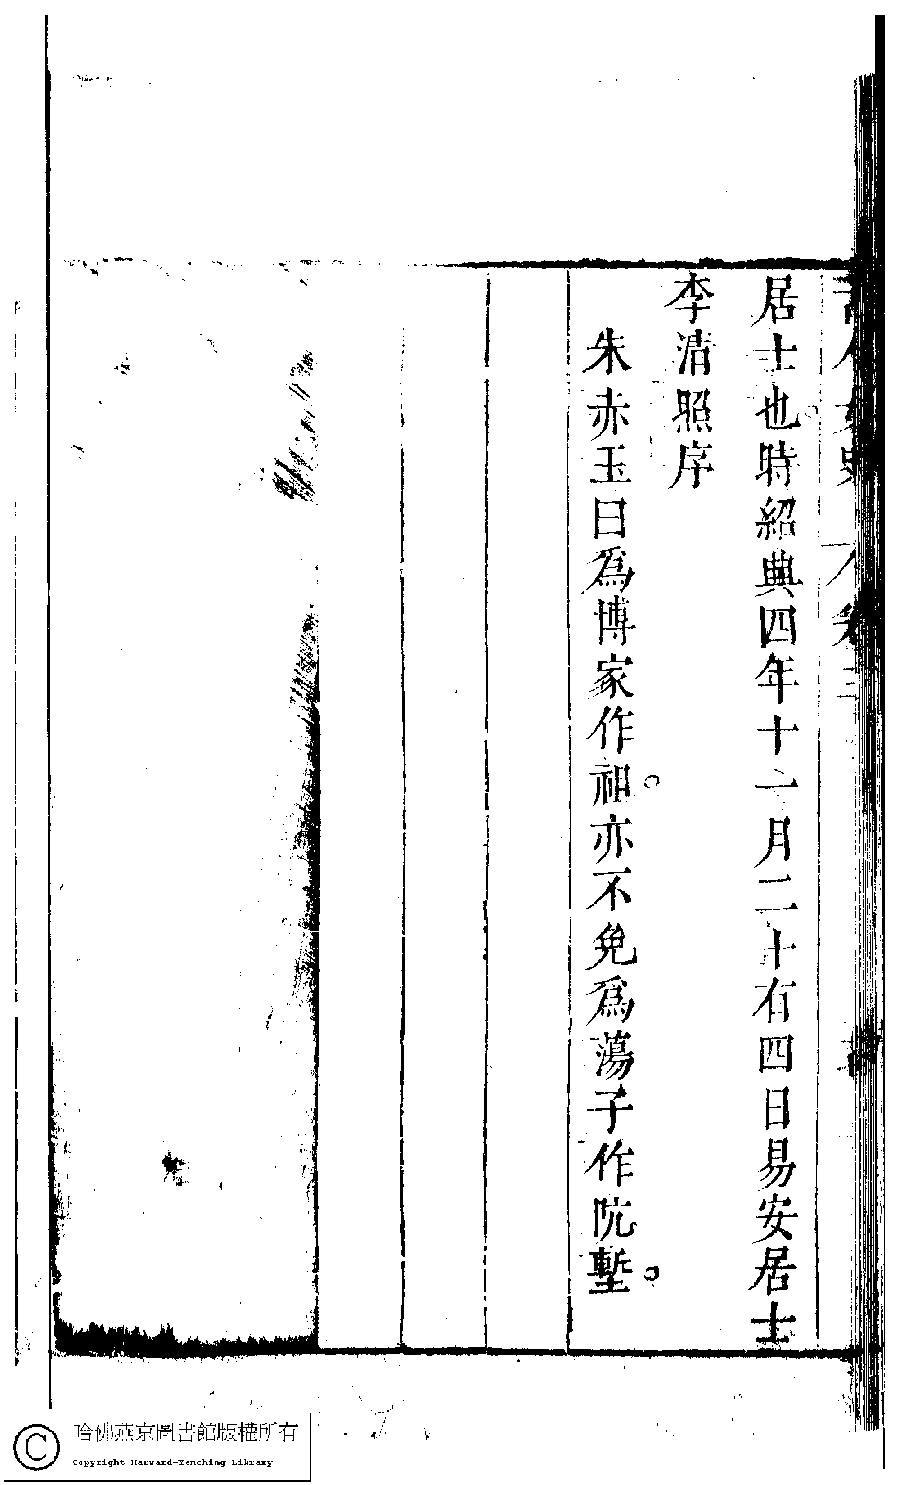 居士也時紹興四年十一月二十有四日易安居士
李清照序
朱赤玉曰爲博家作祖亦不免爲蕩子作阬塹
哈佛燕京圖書館版權所有
Copyright Harvard-Yenching Library